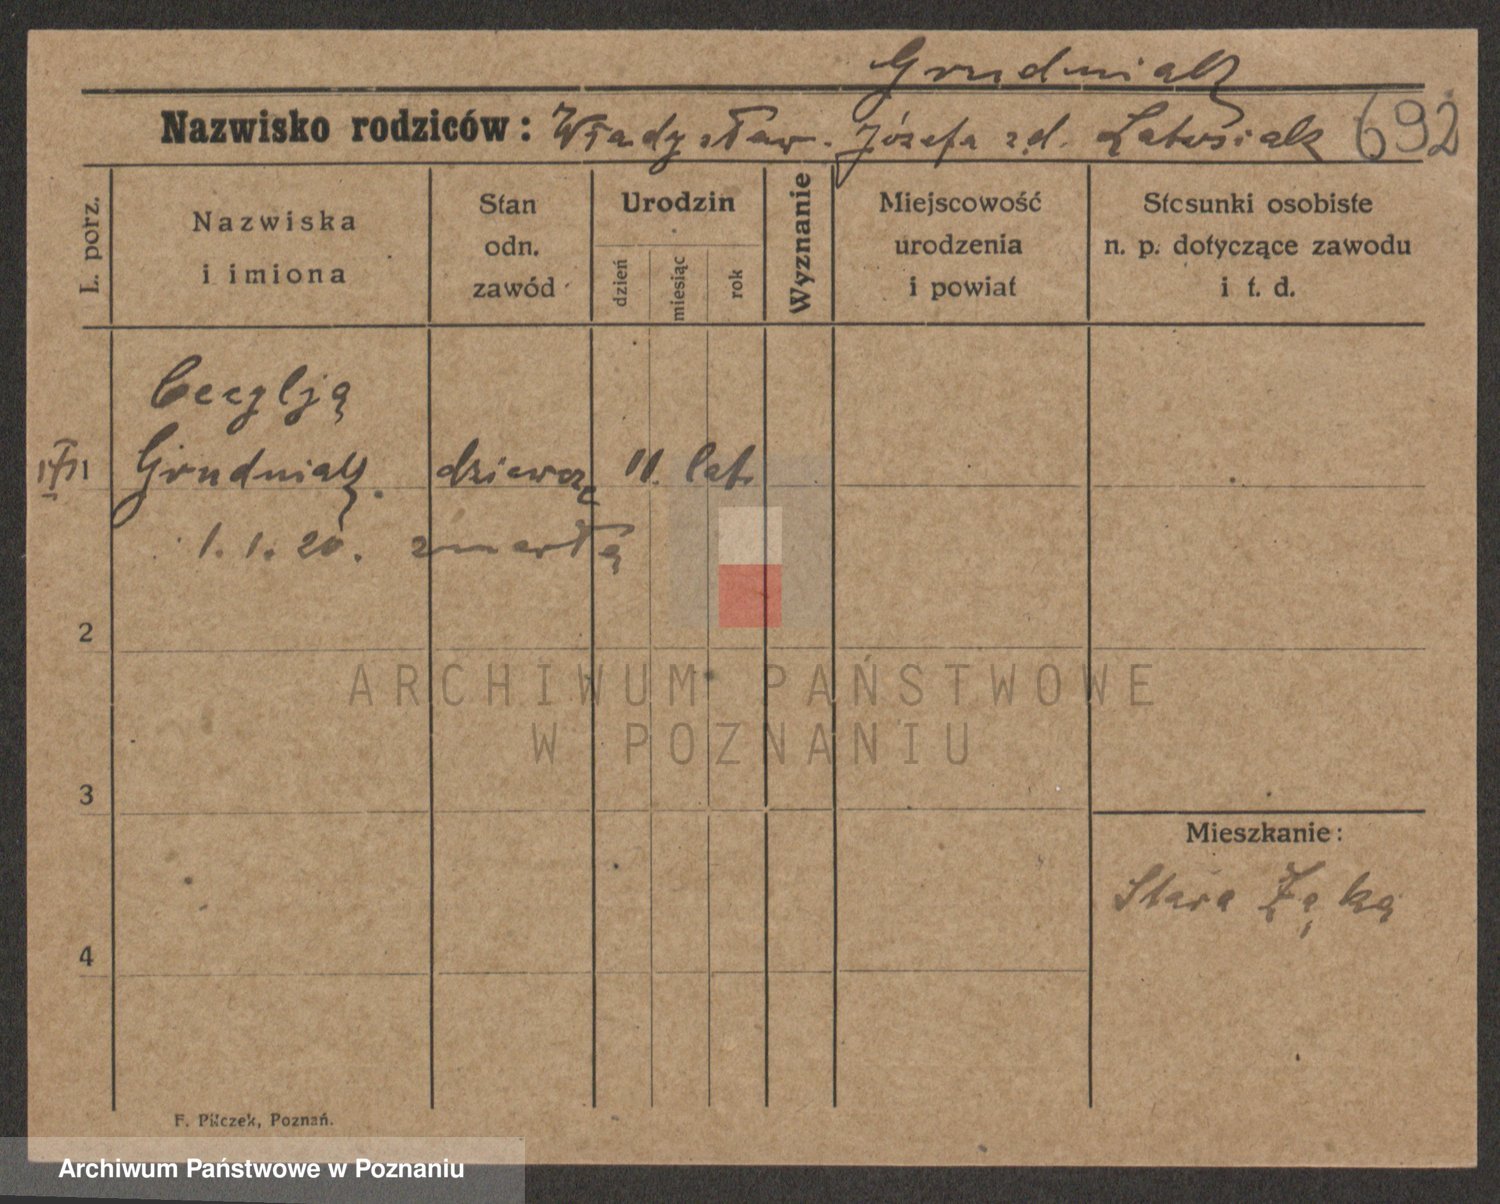 Grudniak
Nazwisko rodziców: Władysław. Józefa zd. Latosiak 692
L. porz.
Nazwiska
i imiona
Stan
odn.
zawód
Urodzin
dzień
miesiąc
rok
Wyznanie
Miejscowość
urodzenia
i powiat
Stosunki osobiste
n. p. dotyczące zawodu
i t. d.
Cecylją
Grudniak. dziewczę 11. lat.
1. 1. 20. zmarłą
2
3
4
Mieszkanie:
Stara
F. Pilczek, Poznań.
ARCHIWUM PAŃSTWOWE
W POZNANIU
Archiwum Państwowe w Poznaniu